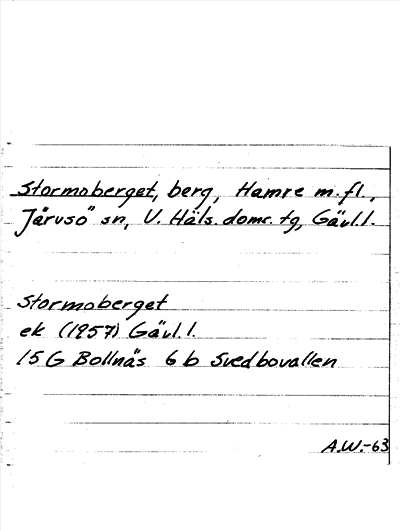 Stormoberget, berg, Hamre m.fl.,
Järvsö sn, V. Häls. domr. tg, Gävl.l.
Stormoberget
ek (1957) Gävl.l.
15 G Bollnäs 6 b Svedbovallen
A.W.-63